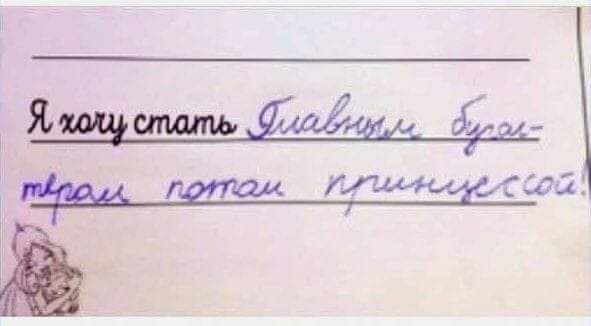 Я хочу стать Главным бугал-
тером потом принцессой!